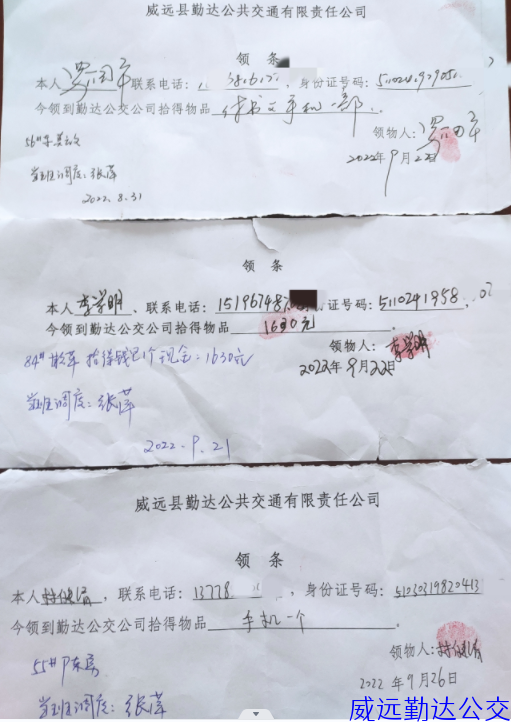 威远县勤达公共交通有限责任公司
领 条
本人 联系电话: ,身份证号码:
今领到勤达公交公司拾得物品 手机一部
领物人:
2022年9月22日
56#车
当班调度:张萍
2022.8.31
领 条
本人李学明、联系电话:15196748 证号码:5110241958
今领到勤达公交公司拾得物品 1630元 。
领物人:李学明
84# 拾得钱包1个现金:1630元
2022年9月22日
当班调度:张萍
2022.9.21
威远县勤达公共交通有限责任公司
领 条
本人 ,联系电话:13778 ,身份证号码:51030319820413
今领到勤达公交公司拾得物品 手机一个 。
领物人:
55#
2022年9月26日
当班调度:张萍
威远勤达公交